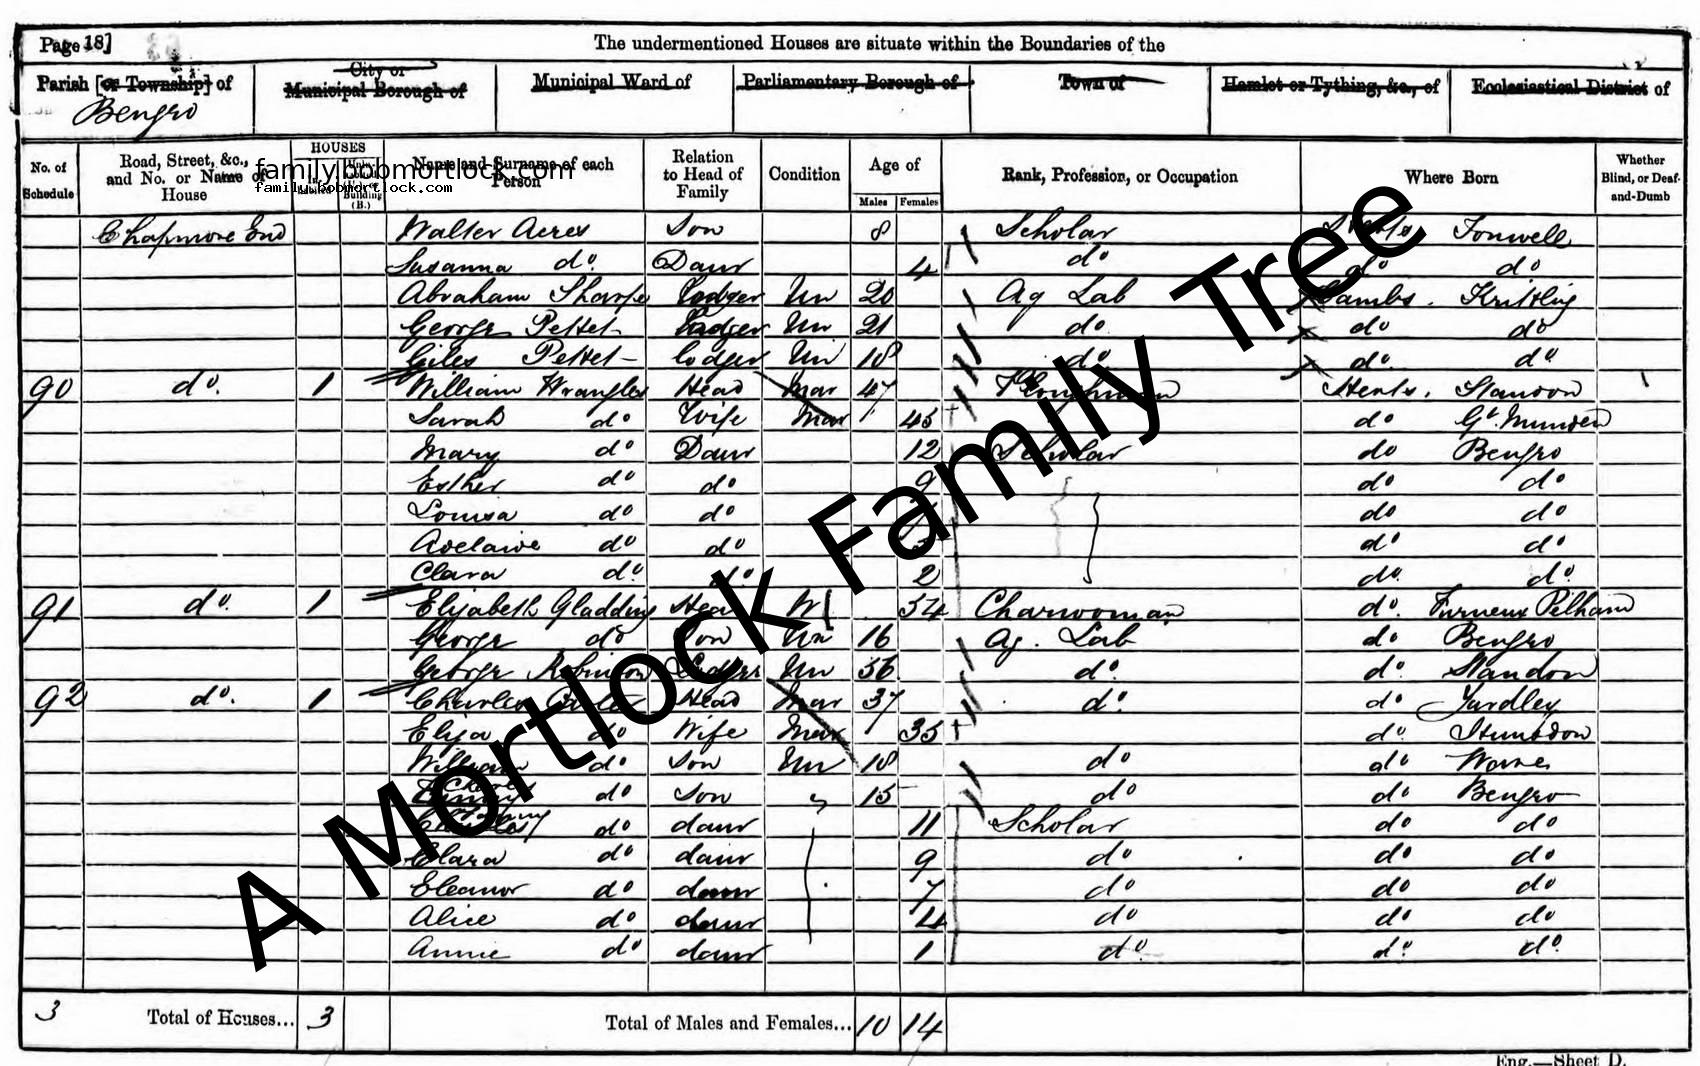 Page 18]
The undermentioned Houses are situate within the Boundaries of the
Parish [or Township] of
City or
Municipal Borough of
Municipal Ward of
Parliamentary Borough of
Town of
Hamlet or Tything, &c., of
Ecclesiastical District of
Bengeo
No. of Schedule
Road, Street, &c., and No. or Name of House
HOUSES
Name and Surname of each Person
Relation to Head of Family
Condition
Age of
Males
Females
Rank, Profession, or Occupation
Where Born
Whether Blind, or Deaf-and-Dumb
family.bobmortlock.com
family.bobmortlock.com
Chapmore End Walter Acres Son 8 Scholar Herts Tonwell
Susanna do. Daur 4 do do do
Abraham Sharpe lodger Un 20 Ag Lab Cambs. Kirtling
George Pettet lodger Un 21 do do do
Giles Pettet lodger Un 18 do. do do
90 do. 1 William Wrangles Head Mar 47 Ploughman Herts. Standon
Sarah do Wife Mar 45 do Gt. Munden
Mary do Daur 12 Scholar do Bengeo
Esther do do 9 do. do
Louisa do do do do
Adelaide do do do do
Clara do. do 2 do. do.
91 do. 1 Elizabeth Gladding Head W 54 Charwoman do. Furneux Pelham
George do Son Un 16 Ag. Lab do Bengeo
George Robinson Lodger Un 56 do. do. Standon
92 do. 1 Charles Head Mar 37 do. do Yardley
Eliza do Wife Mar 35 do. Stundon
William do Son Un 18 do do Wares
Charles do Son 15 do do Bengeo
do daur 11 Scholar do do
Clara do daur 9 do do do
Eleanor do daur 7 do do do
Alice do daur 4 do do do
Annie do daur 1 do. do. do.
3 Total of Houses... 3 Total of Males and Females... 10 14
Eng.—Sheet D.
A Mortlock Family Tree